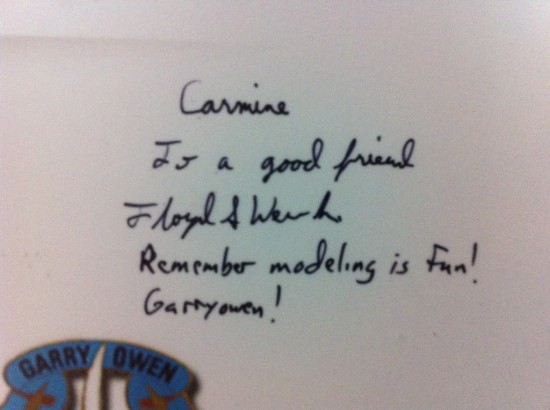 Carmine
To a good friend
Floyd S
Remember modeling is Fun!
Garryowen!
GARRY OWEN